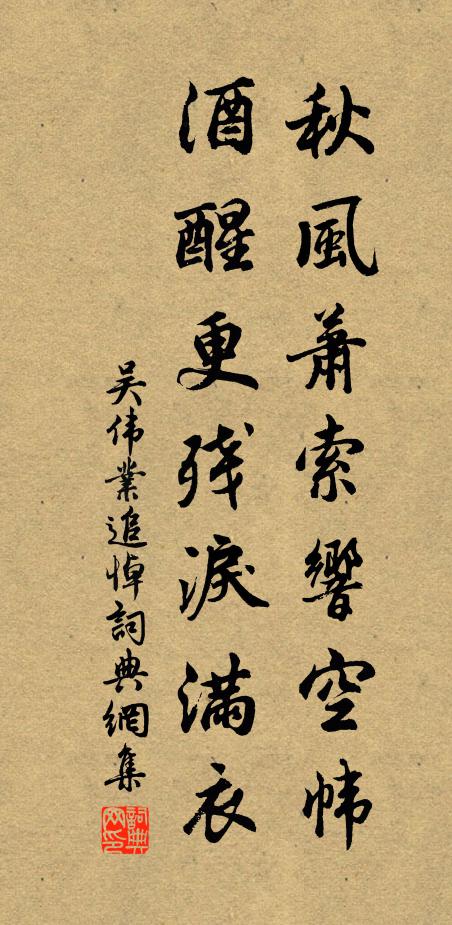 秋風蕭索響空帏
酒醒更残淚滿衣
吴伟業追悼詞典網集
詞典网印